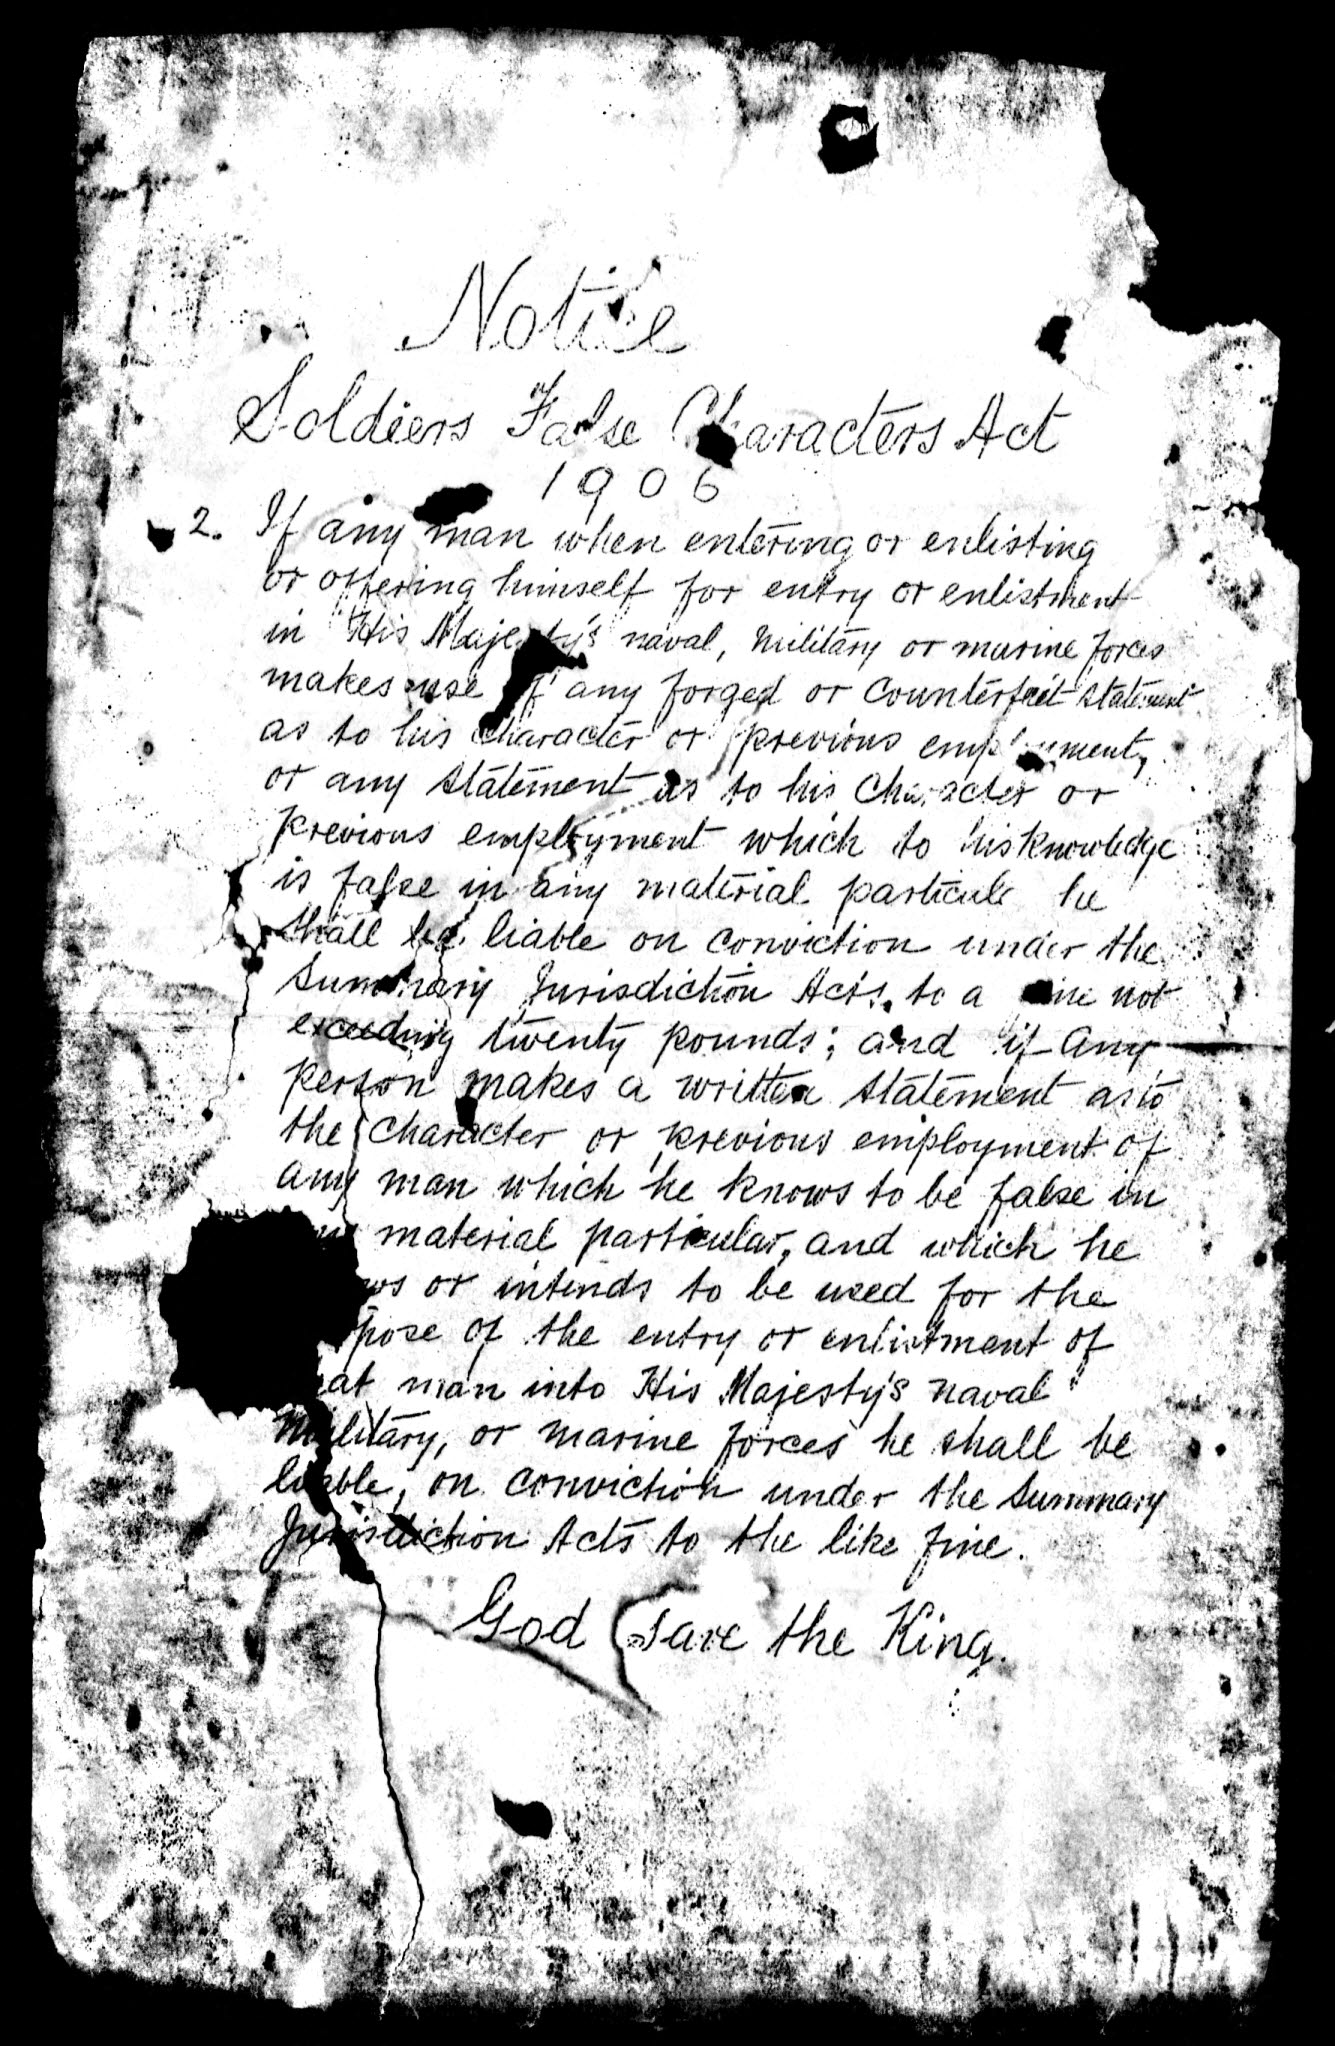 Notice
Soldiers False Characters Act
1906
2. If any man when entering or enlisting
or offering himself for entry or enlistment
in His Majesty's naval, military or marine forces
makes use of any forged or counterfeit statement
as to his character or previous employment,
or any statement as to his character or
previous employment which to his knowledge
is false in any material particular he
shall be liable on conviction under the
Summary Jurisdiction Acts, to a fine not
exceeding twenty pounds; and if any
person makes a written statement as to
the character or previous employment of
any man which he knows to be false in
any material particular, and which he
or intends to be used for the
of the entry or enlistment of
man into His Majesty's naval
military, or marine forces he shall be
liable, on conviction under the Summary
Jurisdiction Acts to the like fine.
God save the King.